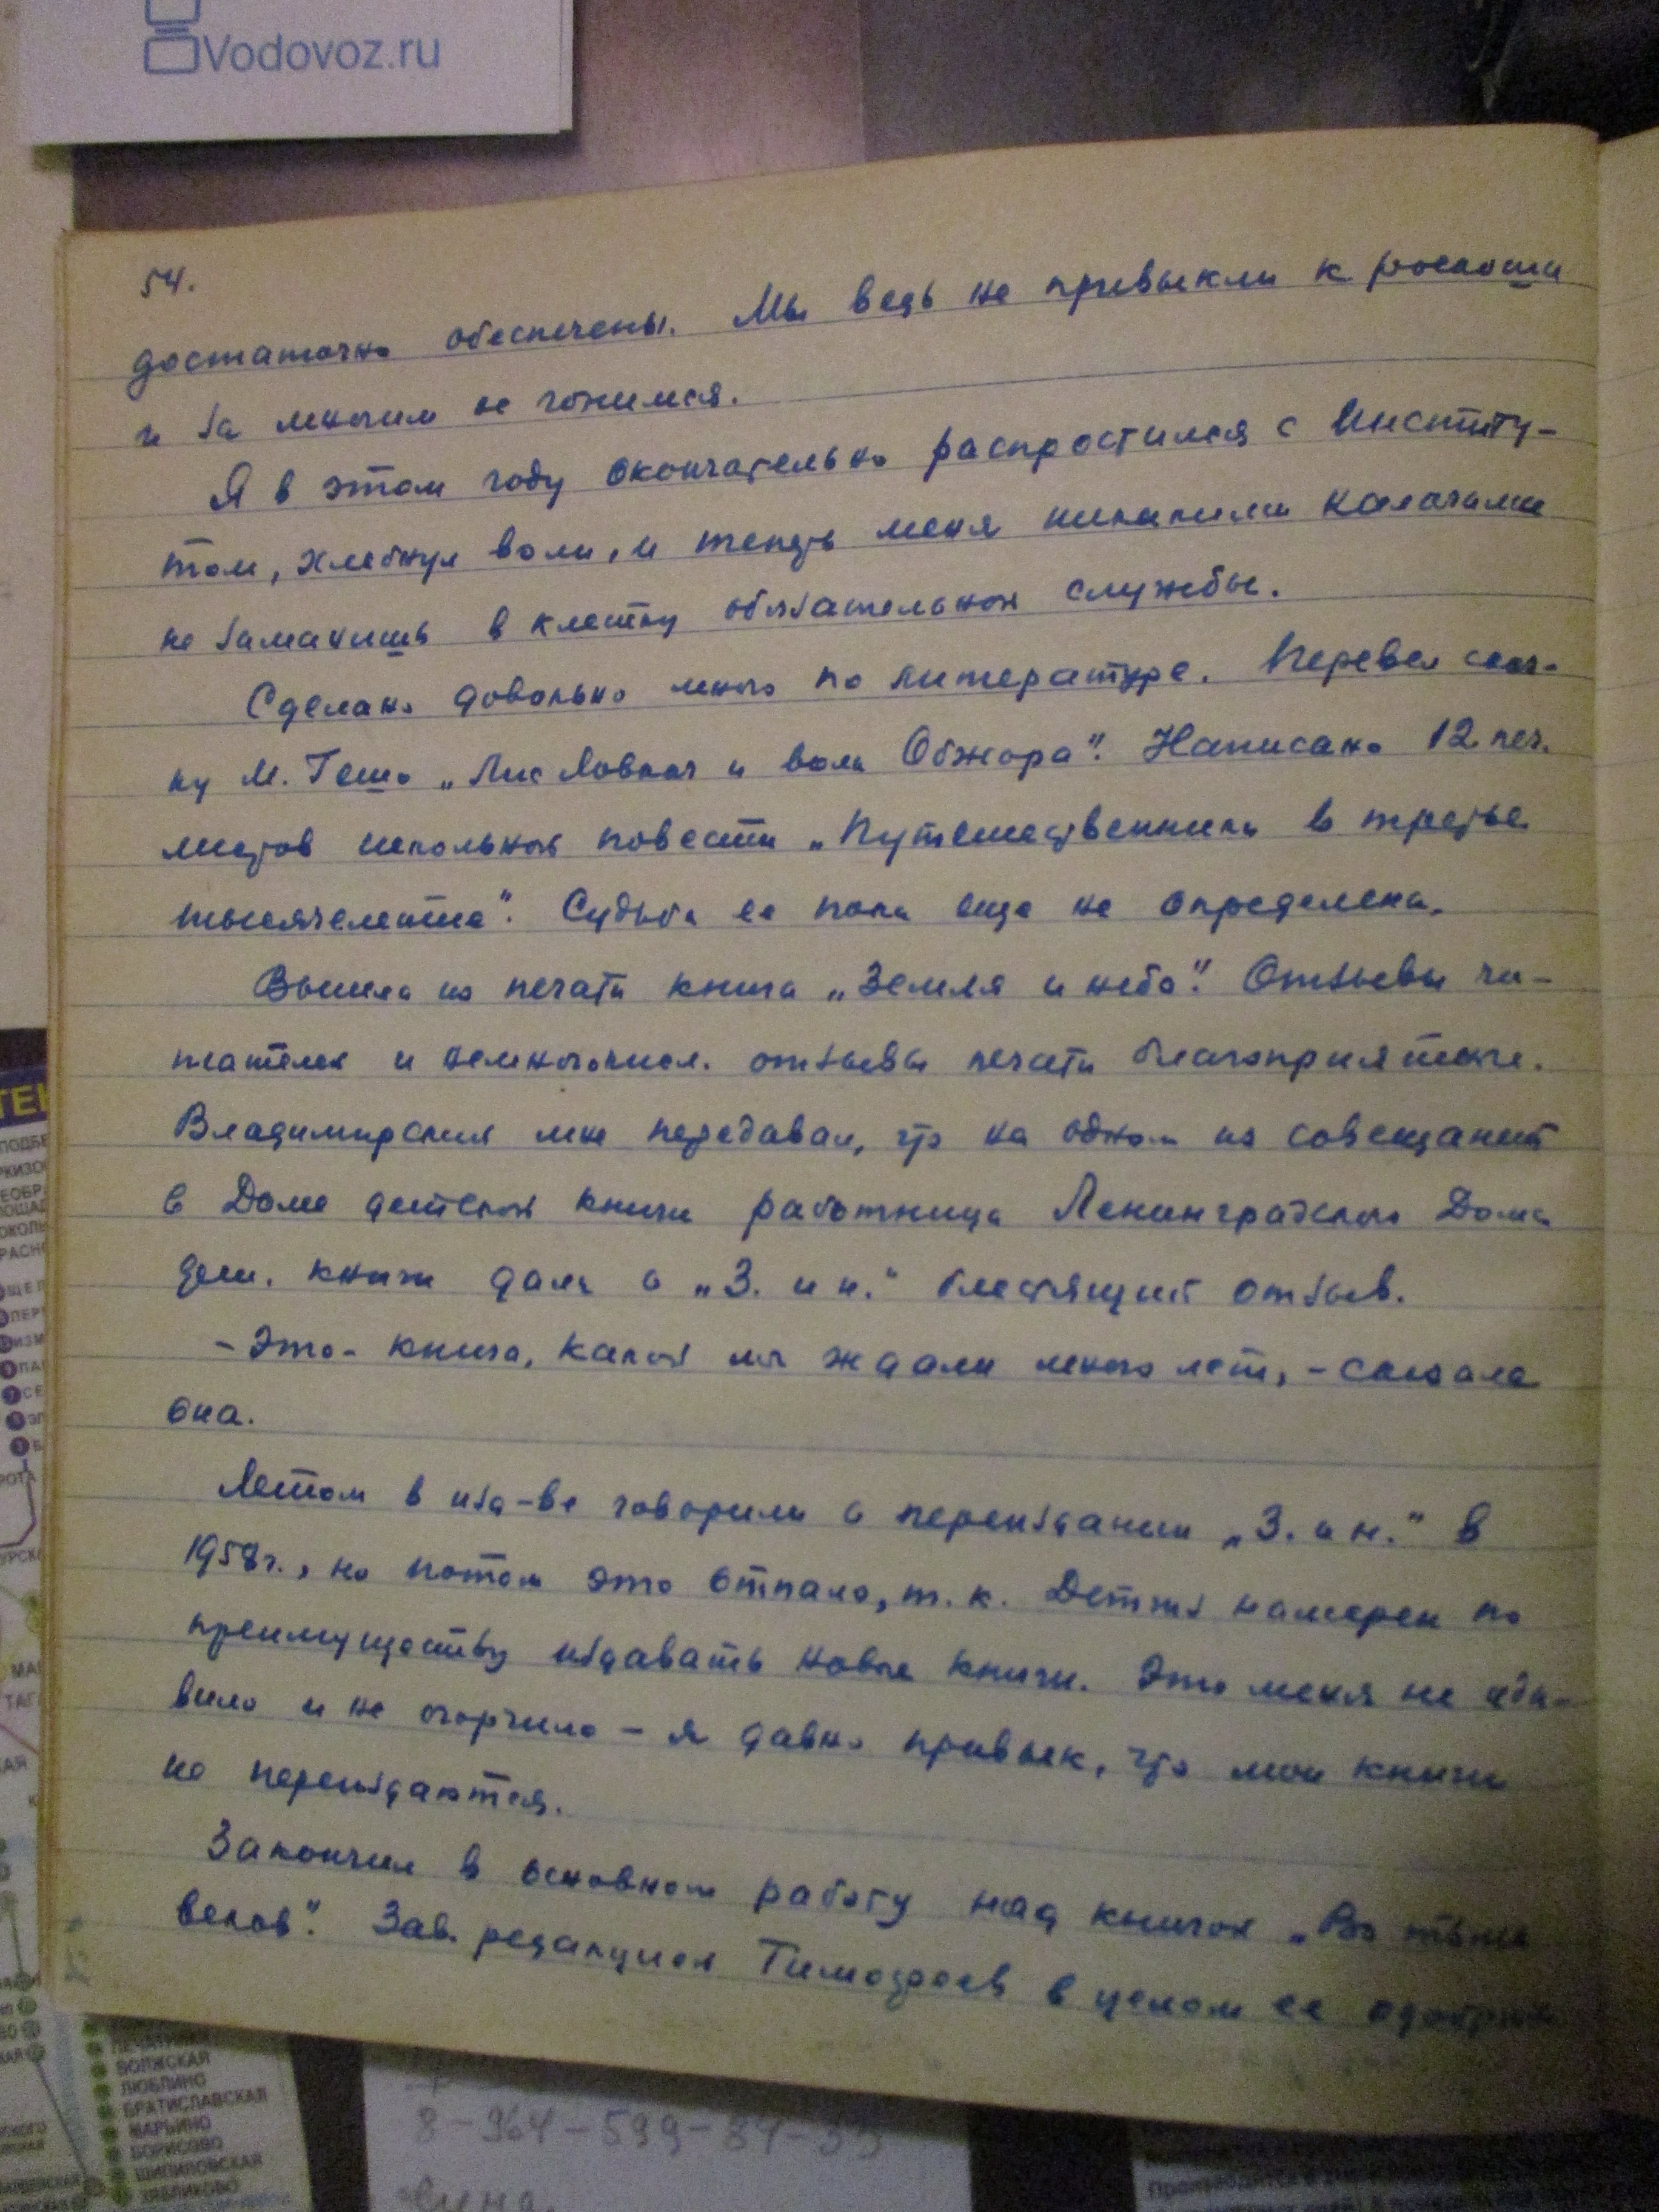 Vodovoz.ru
54.
достаточно обеспечены. Мы ведь не привыкли к роскоши
и за многим не гонимся.
Я в этом году окончательно распростился с Институ-
том, хлебнул воли, и теперь меня никакими калачами
не заманишь в клетку обязательной службы.
Сделано довольно много по литературе. Перевел сказ-
ку М. Гешо „Лис Ловкач и волк Обжора". Написано 12 печ.
листов школьной повести „Путешественники в третье
тысячелетие". Судьба ее пока еще не определена.
Вышла из печати книга „Земля и небо". Отзывы чи-
тателей и немногочисл. отзывы печати благоприятные.
Владимирский мне передавал, что на одном из совещаний
в Доме детской книги работница Ленинградского Дома
дет. книги дала о „З. и н." блестящий отзыв.
- Это - книга, какой мы ждали много лет, - сказала
она.
Летом в изд-ве говорили о переиздании „З. и н." в
1958 г., но потом это отпало, т. к. Детгиз намерен по
преимуществу издавать новые книги. Это меня не уди-
вило и не огорчило - я давно привык, что мои книги
не переиздаются.
Закончил в основном работу над книгой „Во тьме
веков". Зав. редакцией Тимофеев в целом ее одобрил
ПЕЧАТНИКИ
ВОЛЖСКАЯ
ЛЮБЛИНО
БРАТИСЛАВСКАЯ
МАРЬИНО
БОРИСОВО
ШИПИЛОВСКАЯ
ЗЯБЛИКОВО